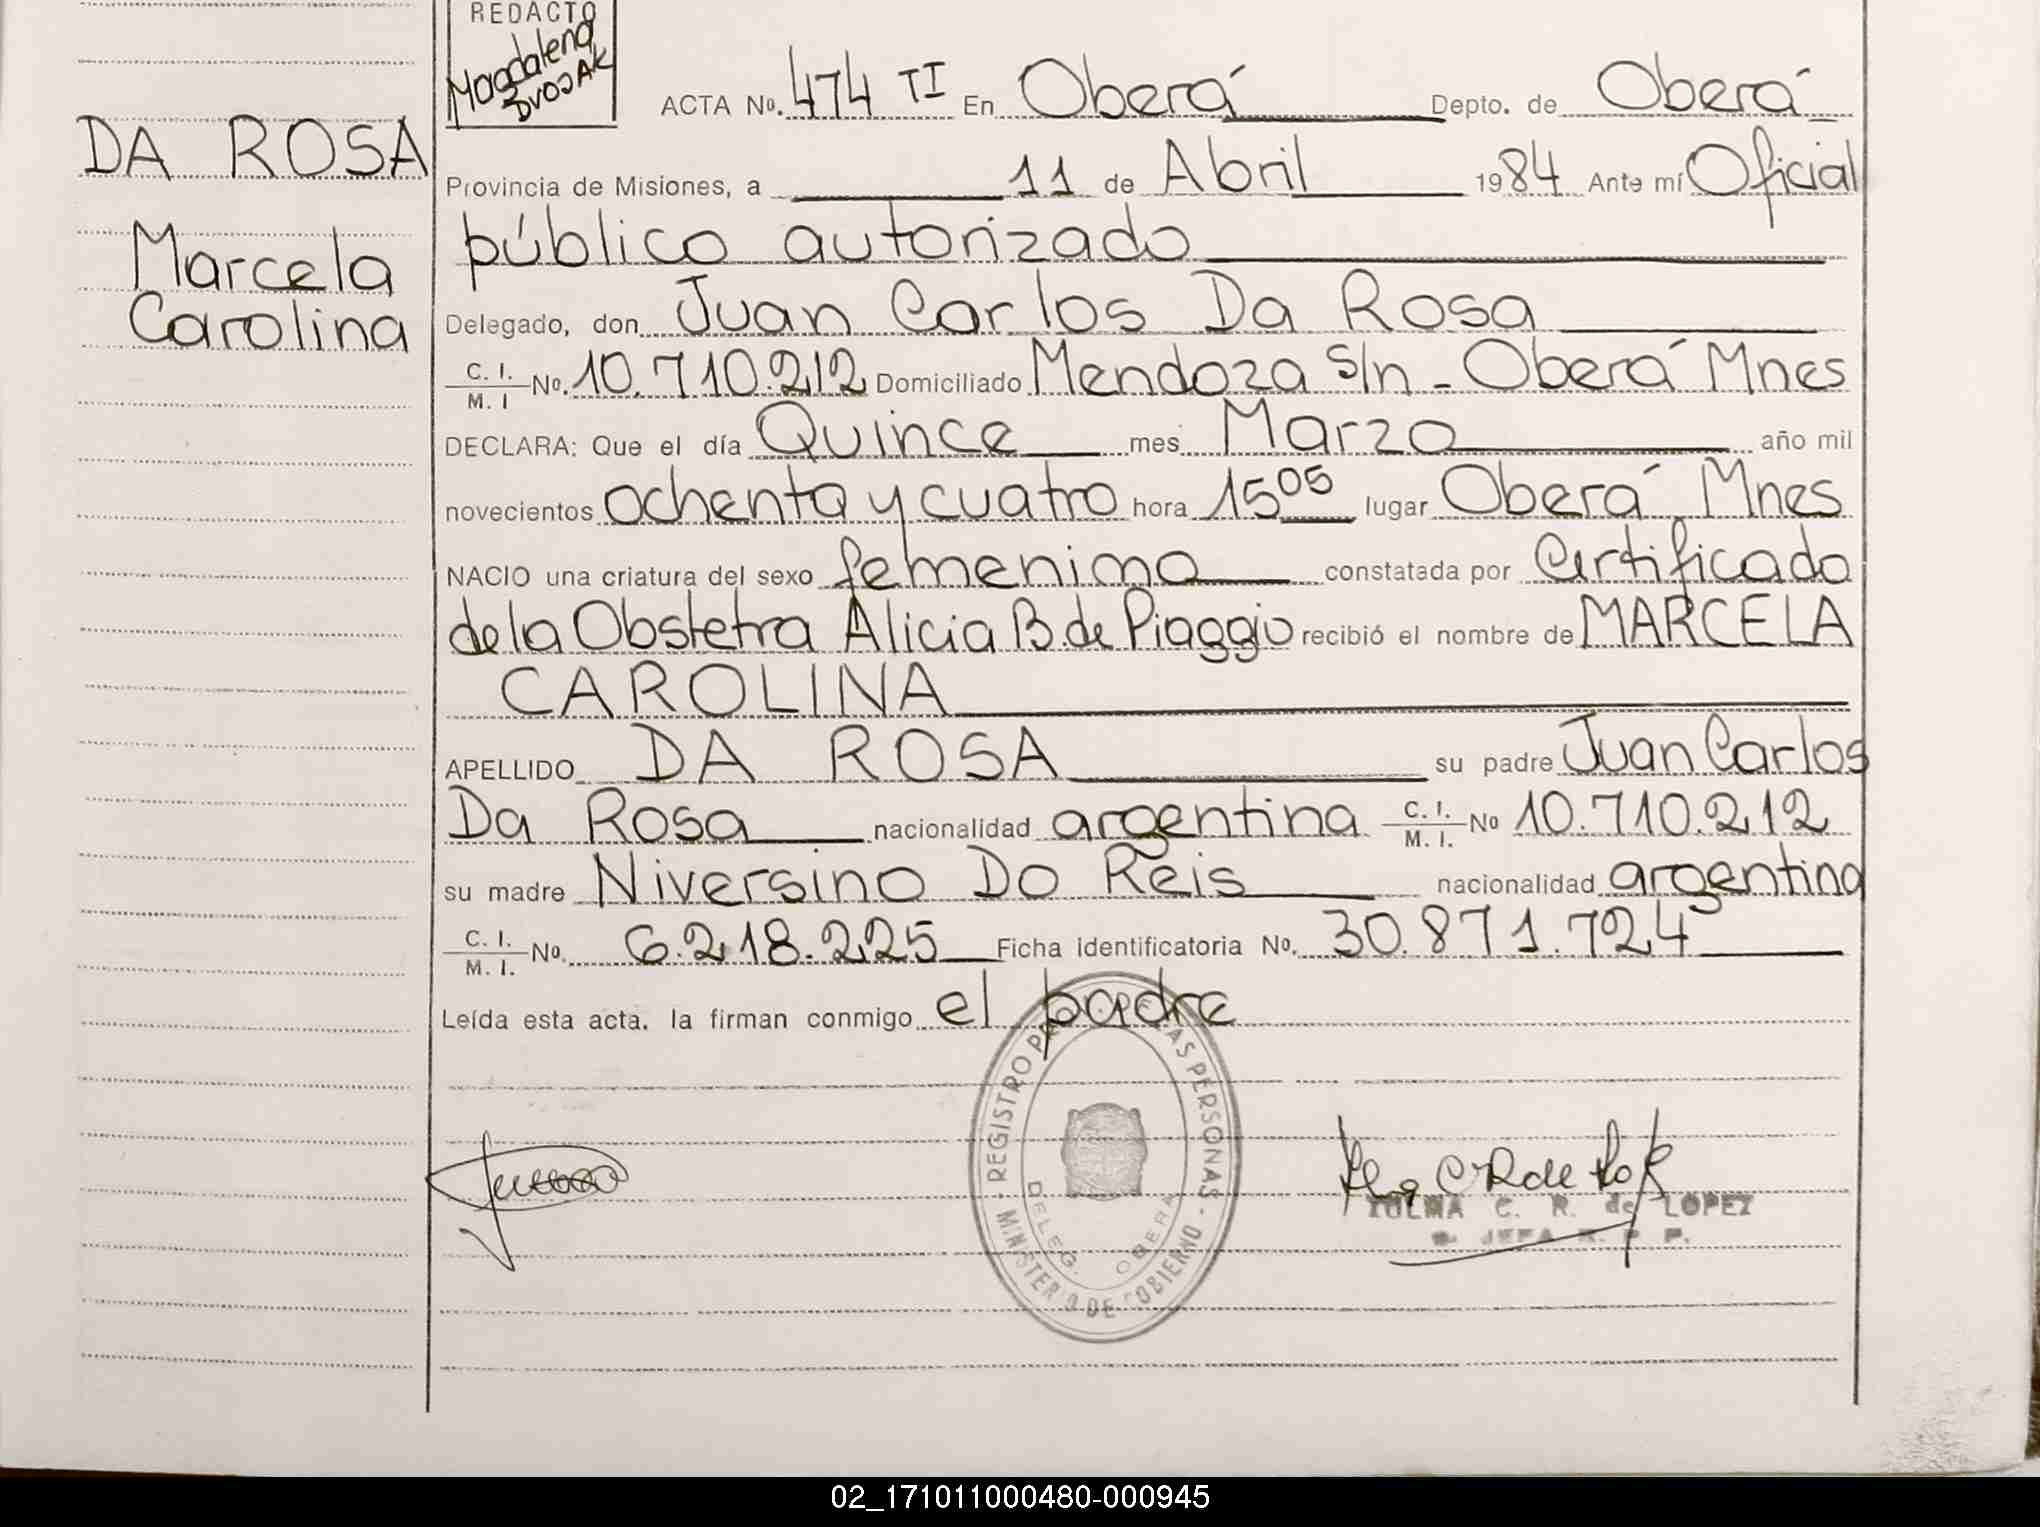 REDACTO
Magdalena
DVOJAK
ACTA No. 474 TI En Oberá Depto. de Oberá
DA ROSA
Marcela
Carolina
Provincia de Misiones, a 11 de Abril 1984 Ante mí Oficial
público autorizado
Delegado, don Juan Carlos Da Rosa
C. I.
M. I No. 10.710.212 Domiciliado Mendoza s/n - Oberá Mnes
DECLARA: Que el día Quince mes Marzo año mil
novecientos ochenta y cuatro hora 15 05 lugar Oberá Mnes
NACIO una criatura del sexo femenino constatada por Certificado
de la Obstetra Alicia B. de Piaggio recibió el nombre de MARCELA
CAROLINA
APELLIDO DA ROSA su padre Juan Carlos
Da Rosa nacionalidad argentina C. I.
M. I. No 10.710.212
su madre Niversino Do Reis nacionalidad argentina
C. I.
M. I. No. 6.218.225 Ficha identificatoria No. 30.871.724
Leída esta acta. la firman conmigo el padre
REGISTRO AS PERSONAS
DELEG. OBERA
MINISTERIO DE GOBIERNO
ZULMA C. R. de LOPEZ
JEFA R. P. P.
02_171011000480-000945